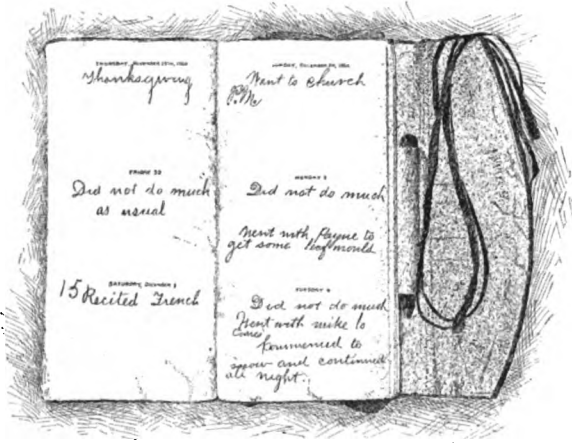 THURSDAY, NOVEMBER 29TH,
Thanksgiving
FRIDAY 30
Did not do much
as usual
SATURDAY, DECEMBER 1
15 Recited French
SUNDAY, DECEMBER 2D,
Want to church
P.M.
MONDAY 3
Did not do much
Went with Payne to
get some leaf mould
TUESDAY 4
Did not do much
Went with mike to
Kommenced to
snow and continued
all night.